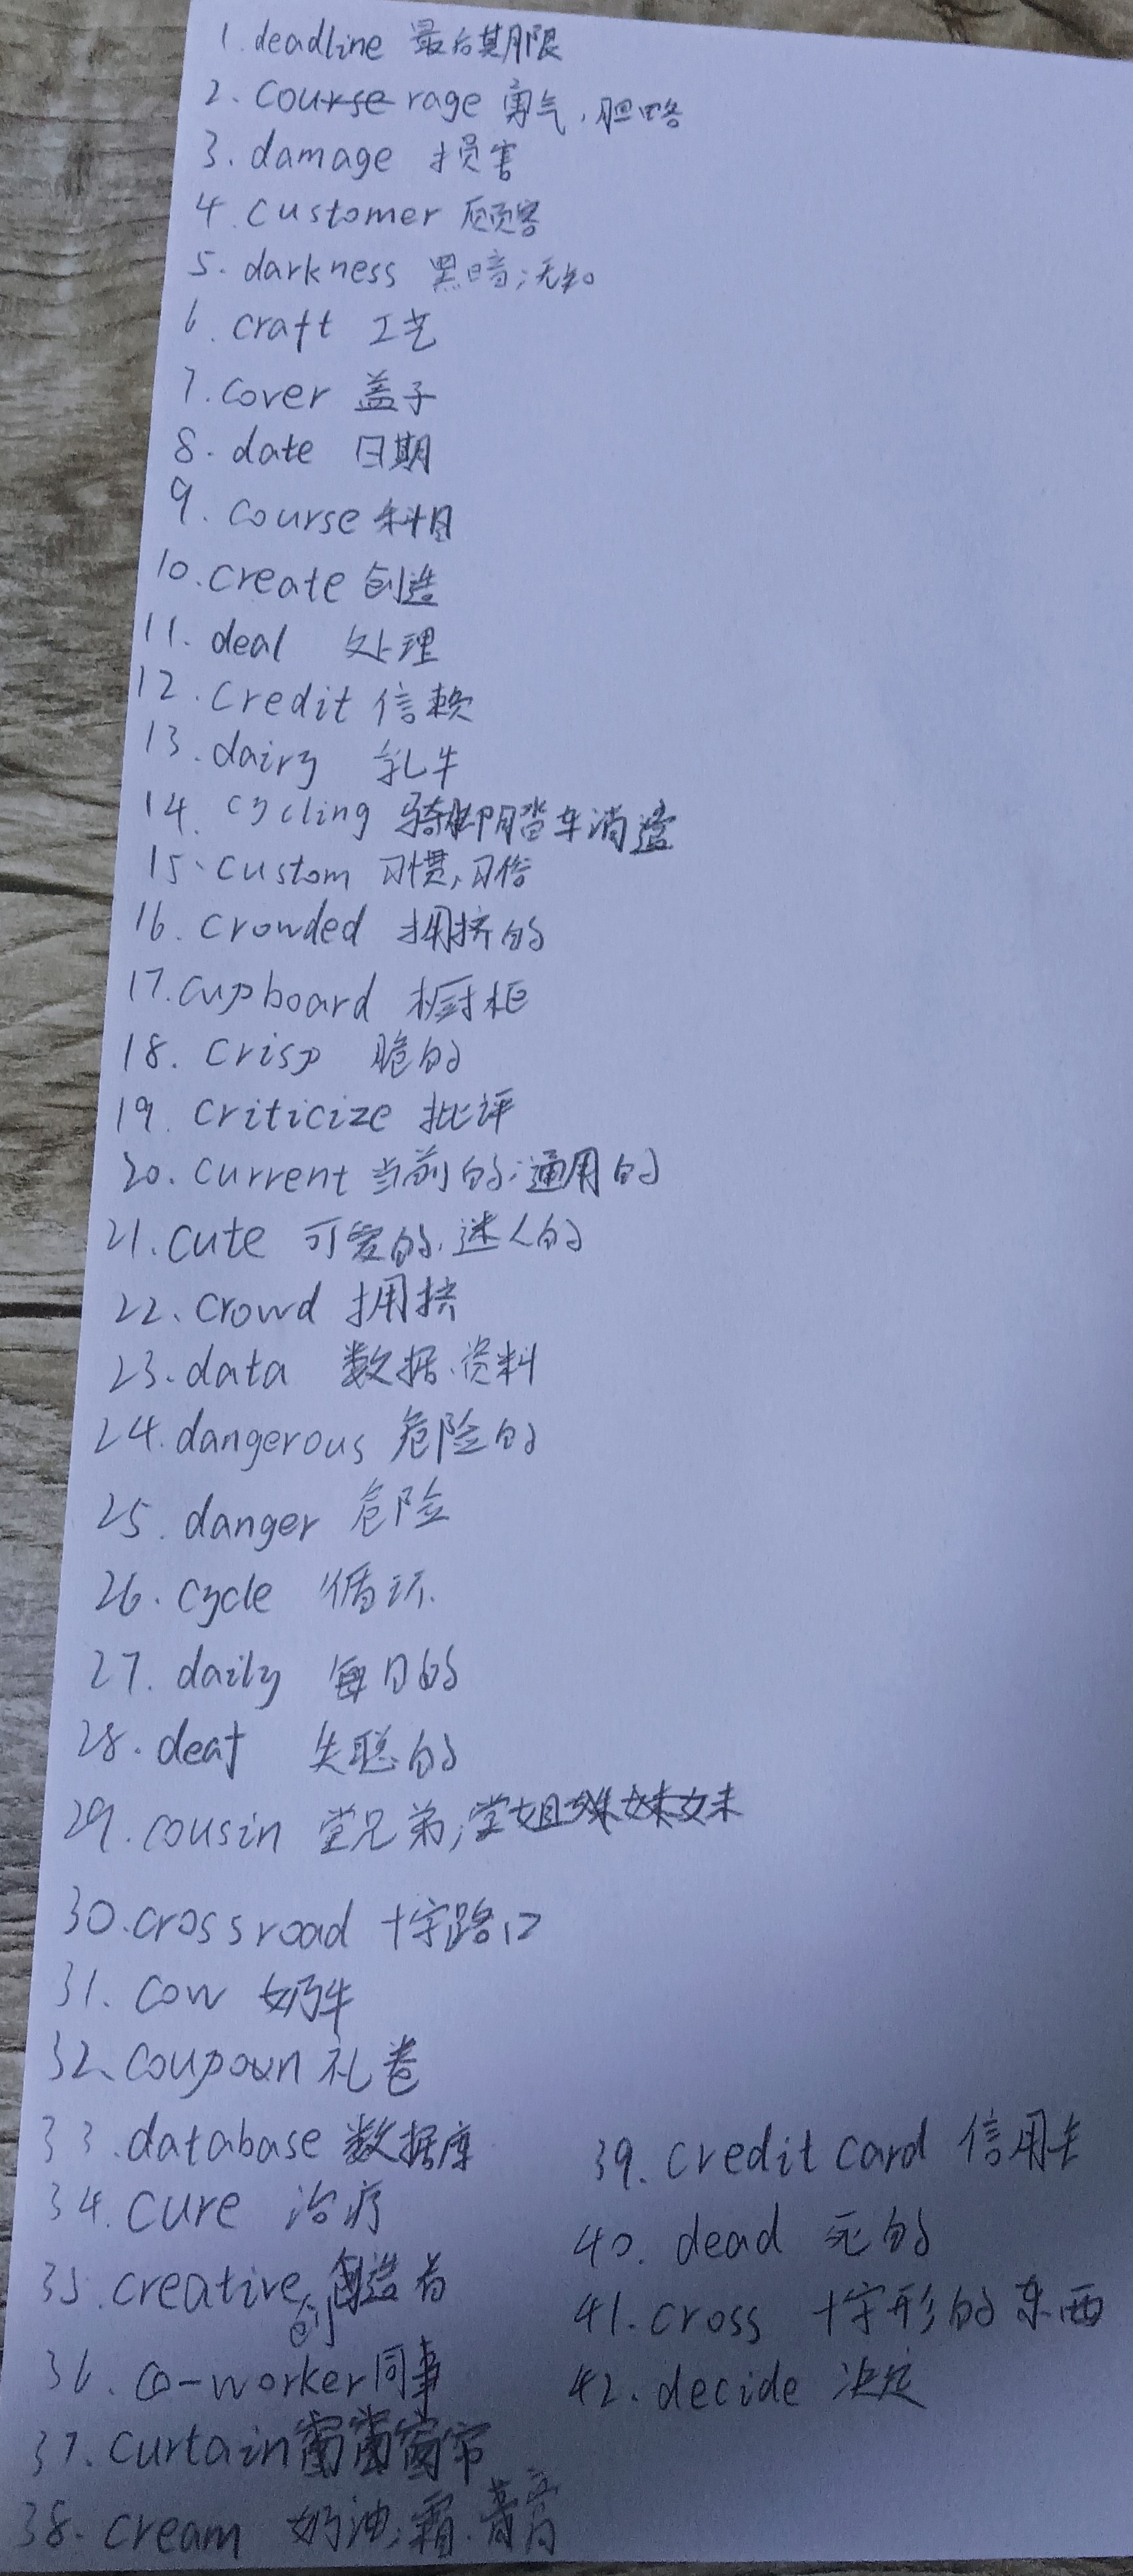 1. deadline 最后其月限
2. courage 勇气,胆略
3. damage 损害
4. customer 顾客
5. darkness 黑暗;无知
6. craft 工艺
7. cover 盖子
8. date 日期
9. course 科目
10. create 创造
11. deal 处理
12. credit 信赖
13. dairy 乳牛
14. cycling 骑脚踏车消遣
15. custom 习惯,习俗
16. crowded 拥挤的
17. cupboard 橱柜
18. crisp 脆的
19. criticize 批评
20. current 当前的;通用的
21. cute 可爱的,迷人的
22. crowd 拥挤
23. data 数据.资料
24. dangerous 危险的
25. danger 危险
26. cycle 循环.
27. daily 每日的
28. deaf 失聪的
29. cousin 堂兄弟;堂姐妹
30. crossroad 十字路口
31. cow 奶牛
32. coupon 礼卷
33. database 数据库
34. cure 治疗
35. creative 创造者
36. co-worker 同事
37. curtain 窗帘
38. cream 奶油;霜.膏
39. credit card 信用卡
40. dead 死的
41. cross 十字形的东西
42. decide 决定